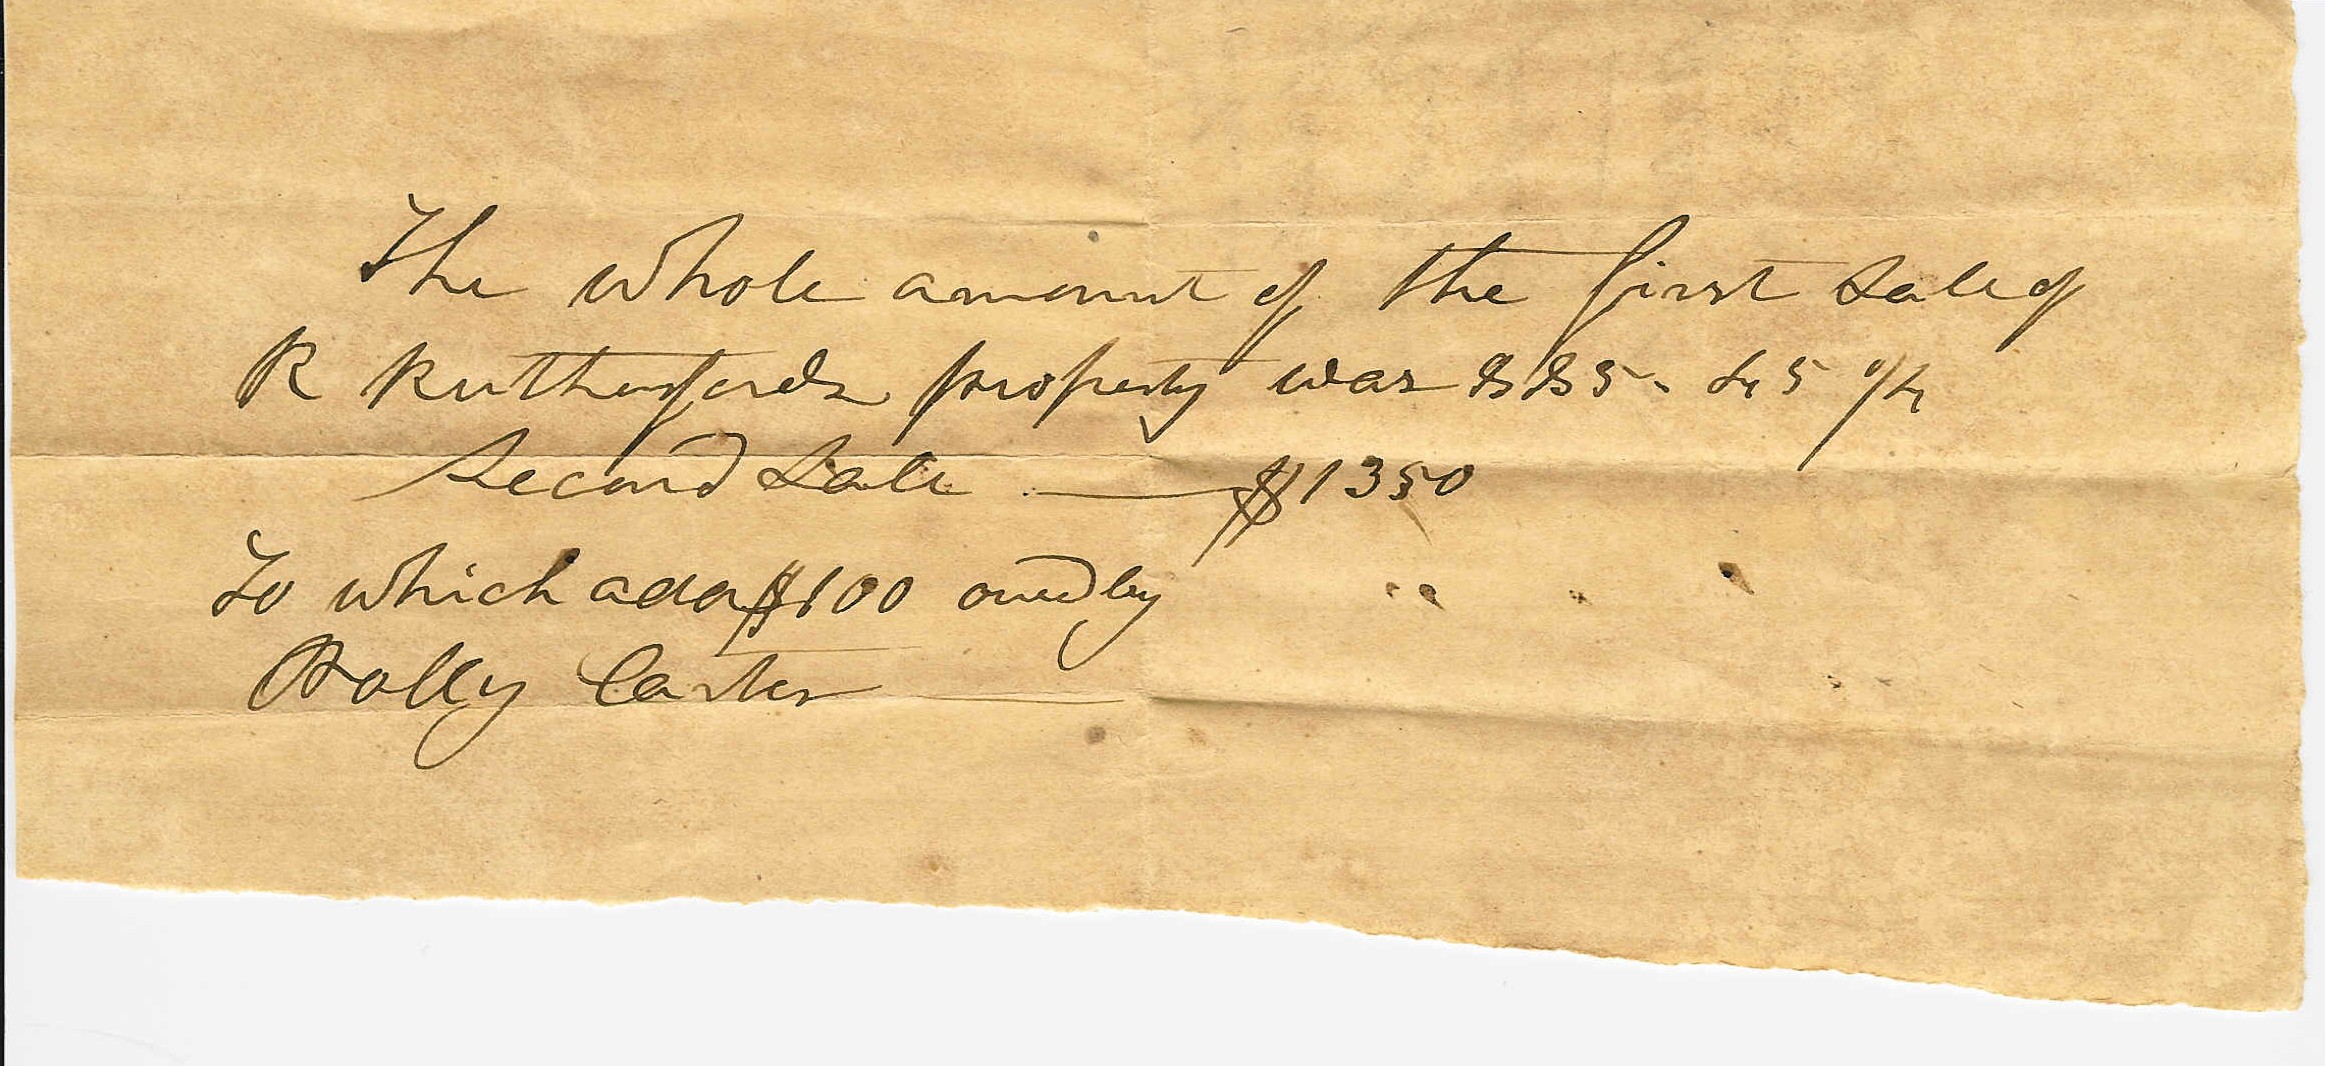 The whole amount of the first Sale of
R Rutherfords property was 885. 45 0/4
Second Sale $1350
To which add $100 owed by
Holly Carter